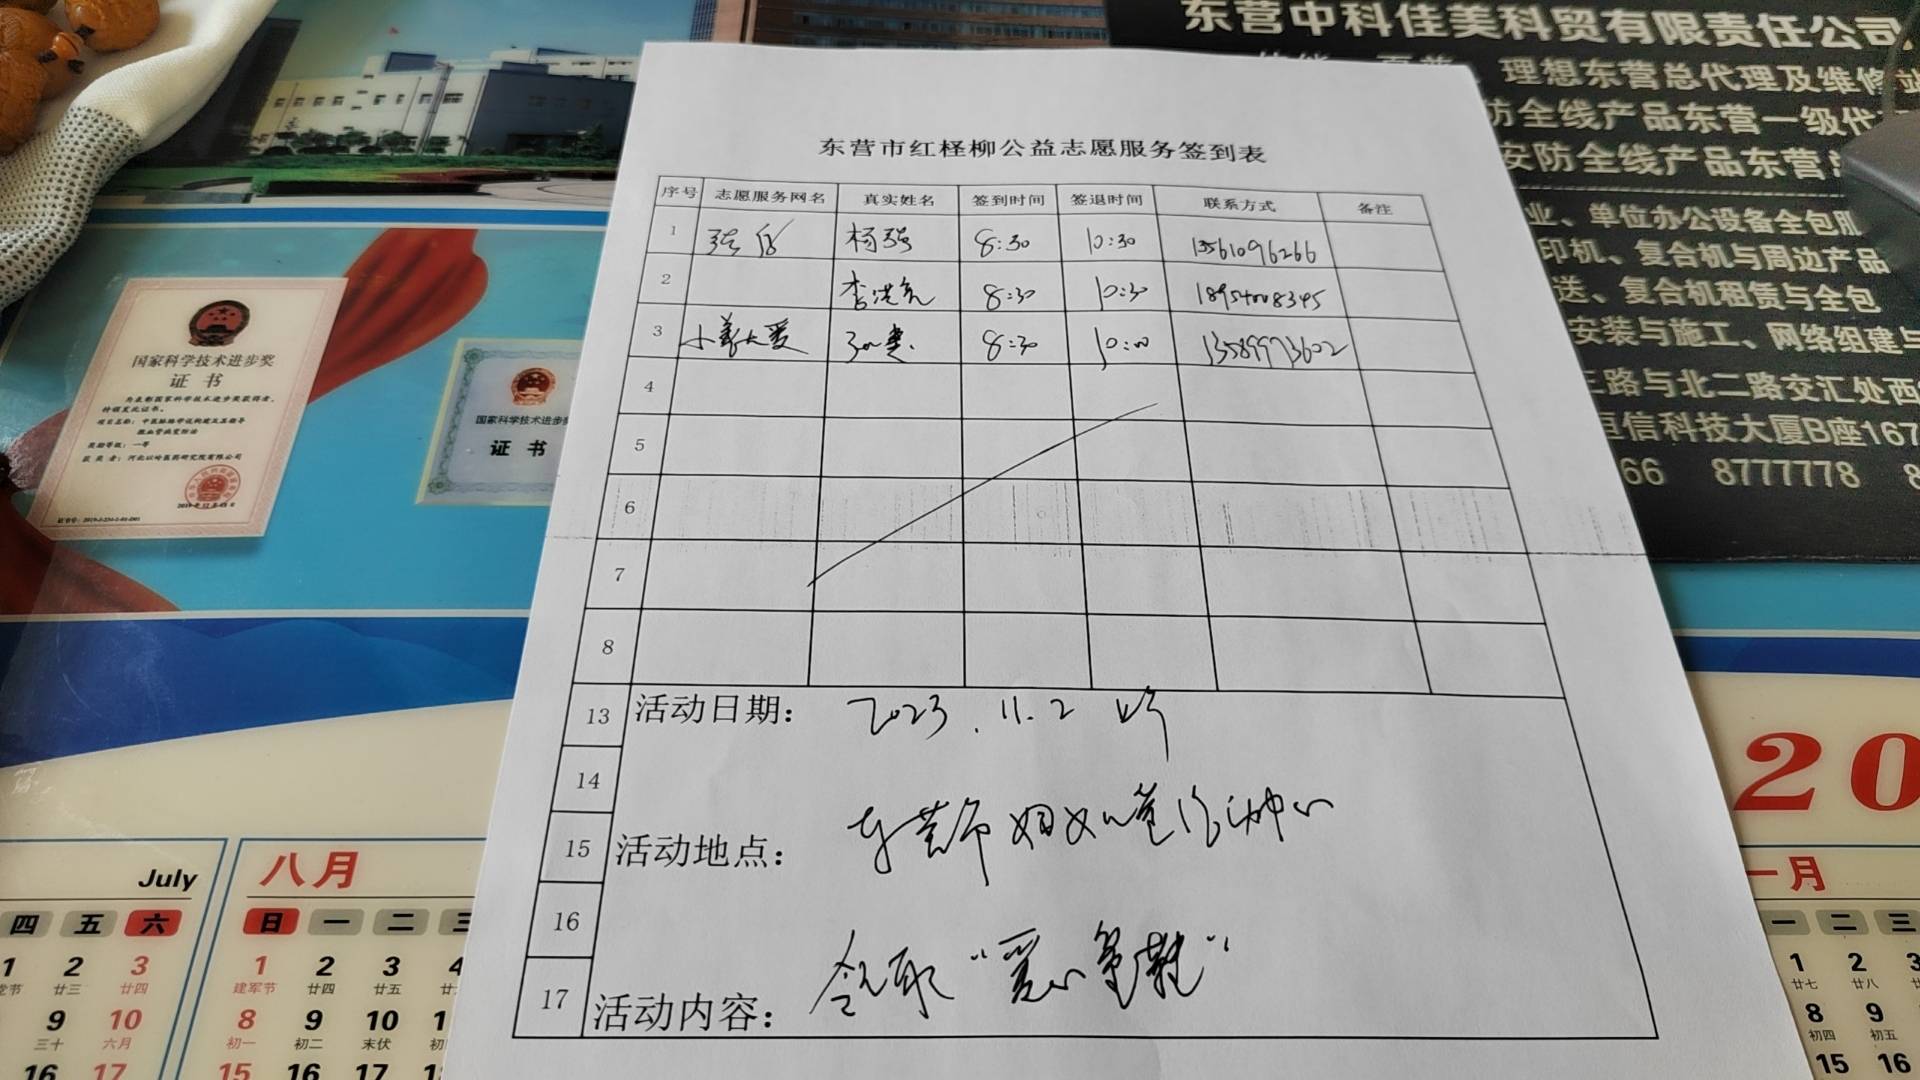 东营中科佳美科贸有限责任公司
理想东营总代理及维修站
防全线产品东营一级代
安防全线产品东营
业、单位办公设备全包服
印机、复合机与周边产品
送、复合机租赁与全包
安装与施工、网络组建与
三路与北二路交汇处西
恒信科技大厦B座167
66 8777778 8
国家科学技术进步奖
证书
为表彰国家科学技术进步奖获得者,
特颁发此证书。
奖励等级: 一等
获奖者: 河北以岭医药研究院有限公司
国家科学技术进步奖
证书
东营市红柽柳公益志愿服务签到表
序号 志愿服务网名 真实姓名 签到时间 签退时间 联系方式 备注
1 杨强 8:30 10:30 13561096266
2 8:30 10:30 18954008345
3 8:30 10:00 13589973602
4
5
6
7
8
13 活动日期: 2023.11.2
14
15 活动地点: 东营市妇女儿童活动中心
16
17 活动内容: 领取“爱心童鞋”
July
四 五 六
1 2 3
廿三 廿四
9 10
三十 六月
16 17
八月
日 一 二 三
1 2 3 4
建军节 廿四 廿五
8 9 10 1
初一 初二 末伏 初
15 16 17
20
一月
一 二 三
1 2 3
廿七 廿八
8 9
初四 初五
15 16